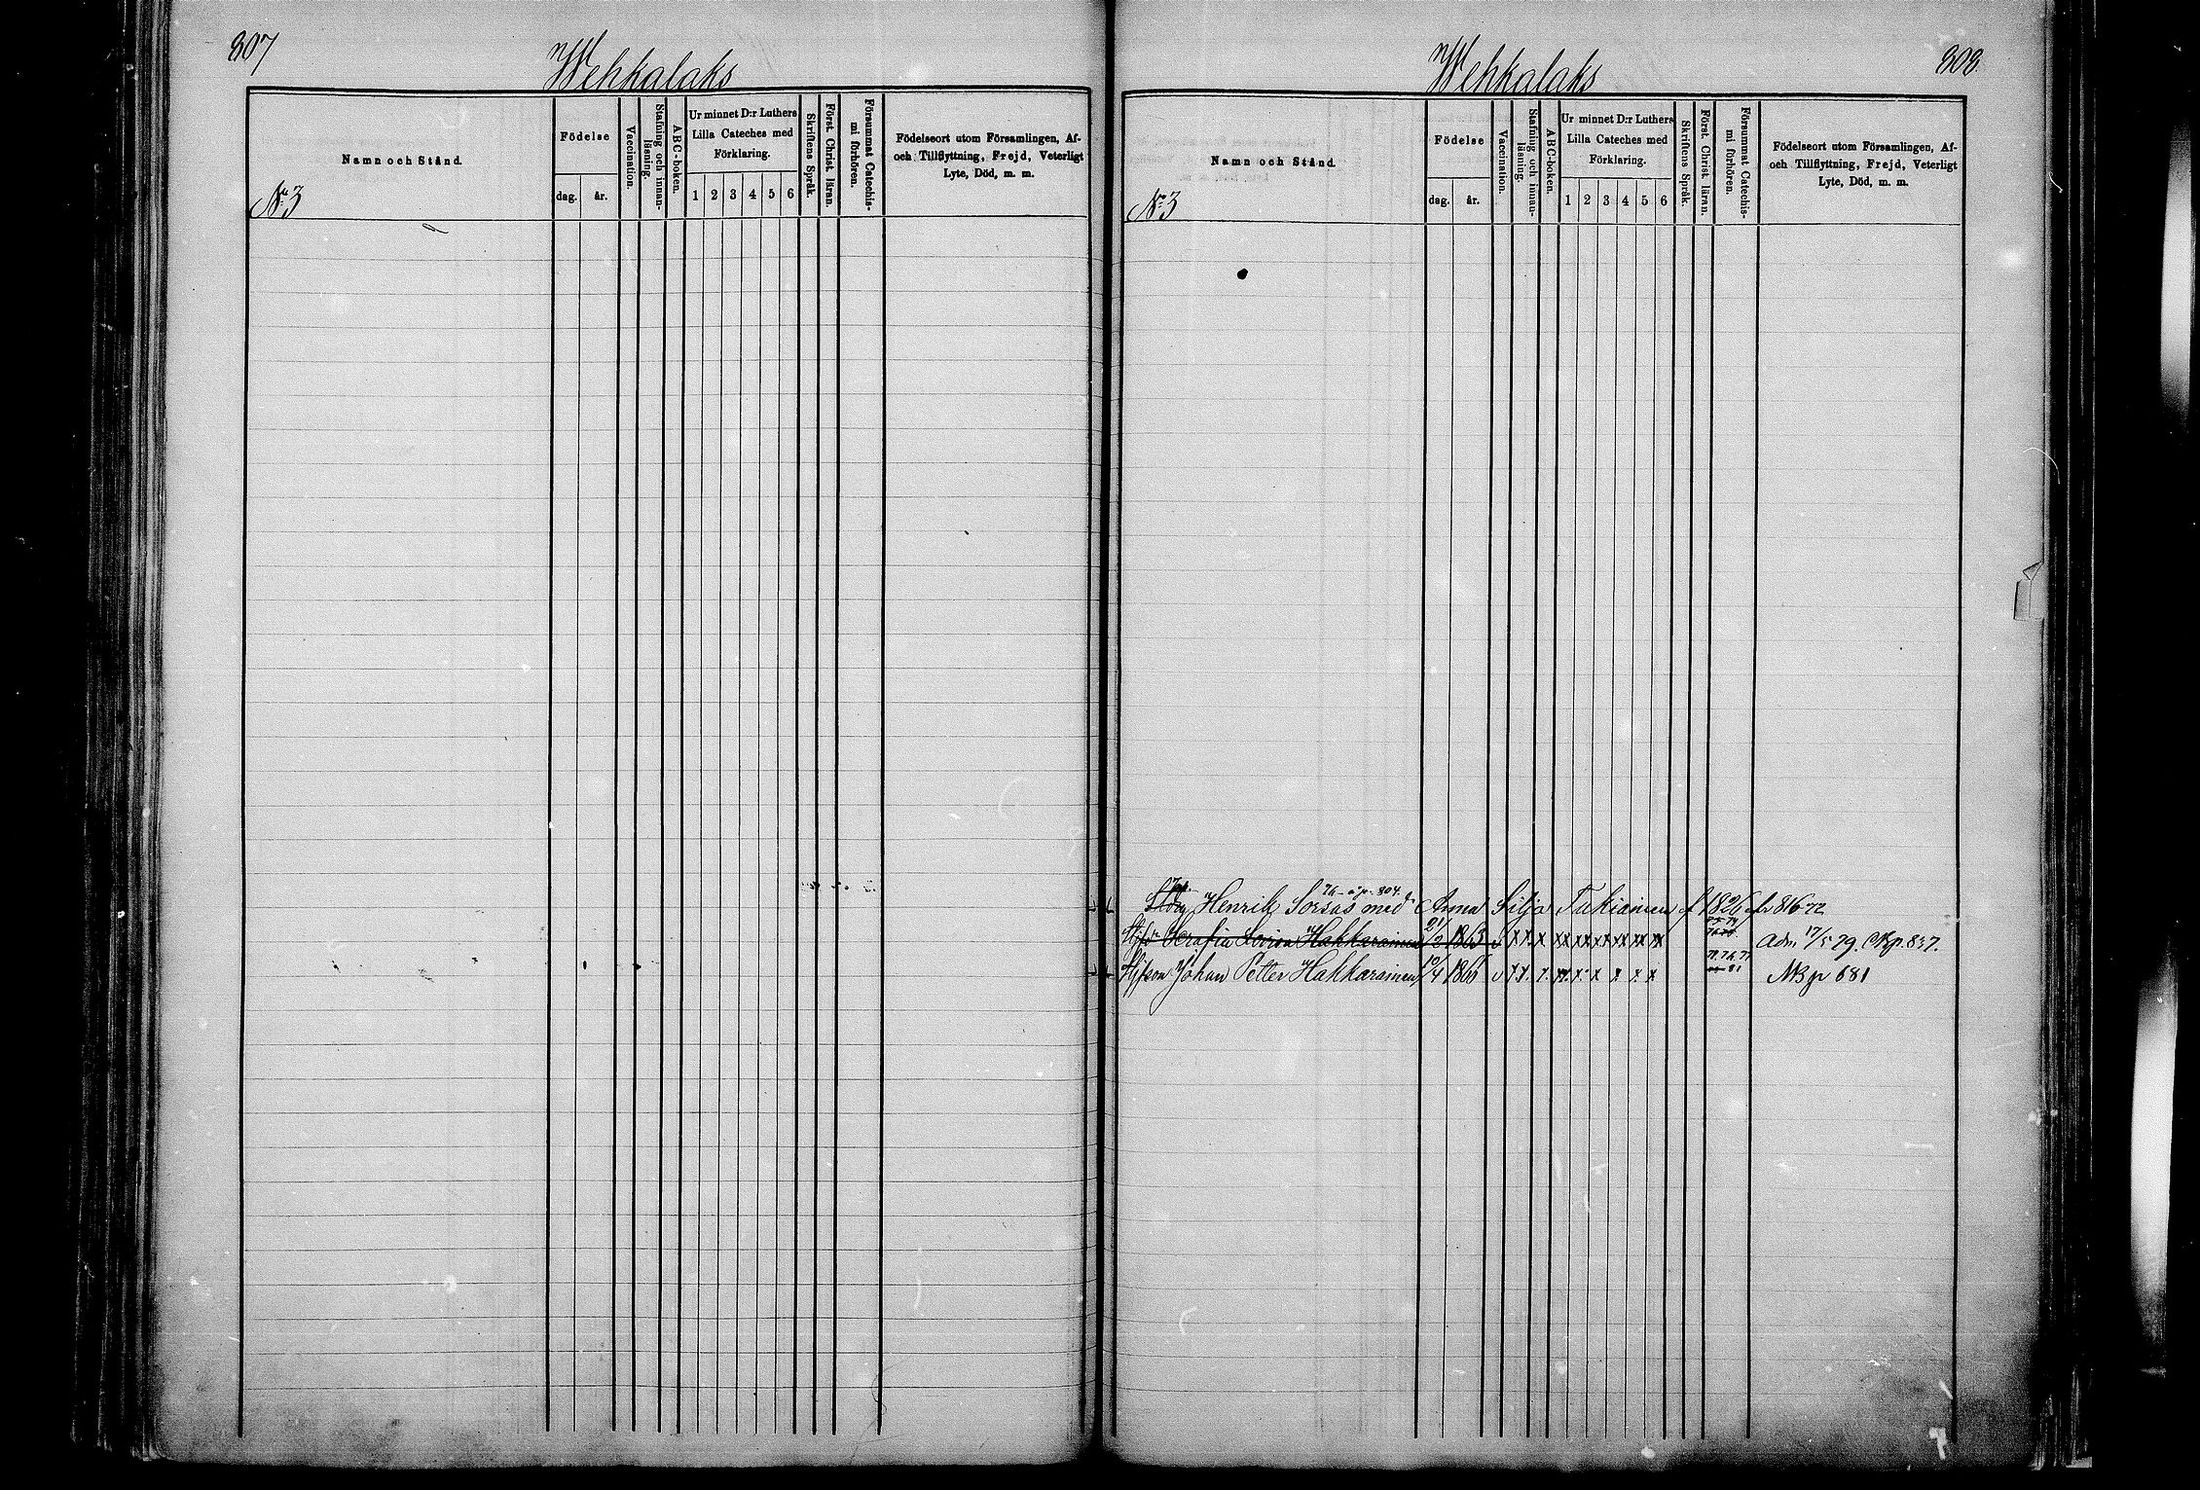 807
Wehkalaks
Namn och Stånd.
No 3
Födelse
dag.
år.
Vaccination.
Stafning och innan-
läsning.
ABC-boken.
Ur minnet D:r Luthers
Lilla Cateches med
Förklaring.
1 2 3 4 5 6
Skriftens Språk.
Först. Christ. läran.
Försummat Catechis-
mi förhören.
Födelseort utom Församlingen, Af-
och Tillflyttning, Frejd, Veterligt
Lyte, Död, m. m.
Wehkalaks
808.
Namn och Stånd.
No 3
Födelse
dag.
år.
Vaccination.
Stafning och innan-
läsning.
ABC-boken.
Ur minnet D:r Luthers
Lilla Cateches med
Förklaring.
1 2 3 4 5 6
Skriftens Språk.
Först. Christ. läran.
Försummat Catechis-
mi förhören.
Födelseort utom Församlingen, Af-
och Tillflyttning, Frejd, Veterligt
Lyte, Död, m. m.
p. 804.
Henrik Sorsas med Anna Silja Tukiainen f 1826 816 72
Serafia Lovisa Hakkarainen 21/2 1863 x x x x x x x x x Adm 17/5 79. p. 837.
Styfson Johan Petter Hakkarainen 10/4 1866 v x x x x x x x x x 81 NB p 681